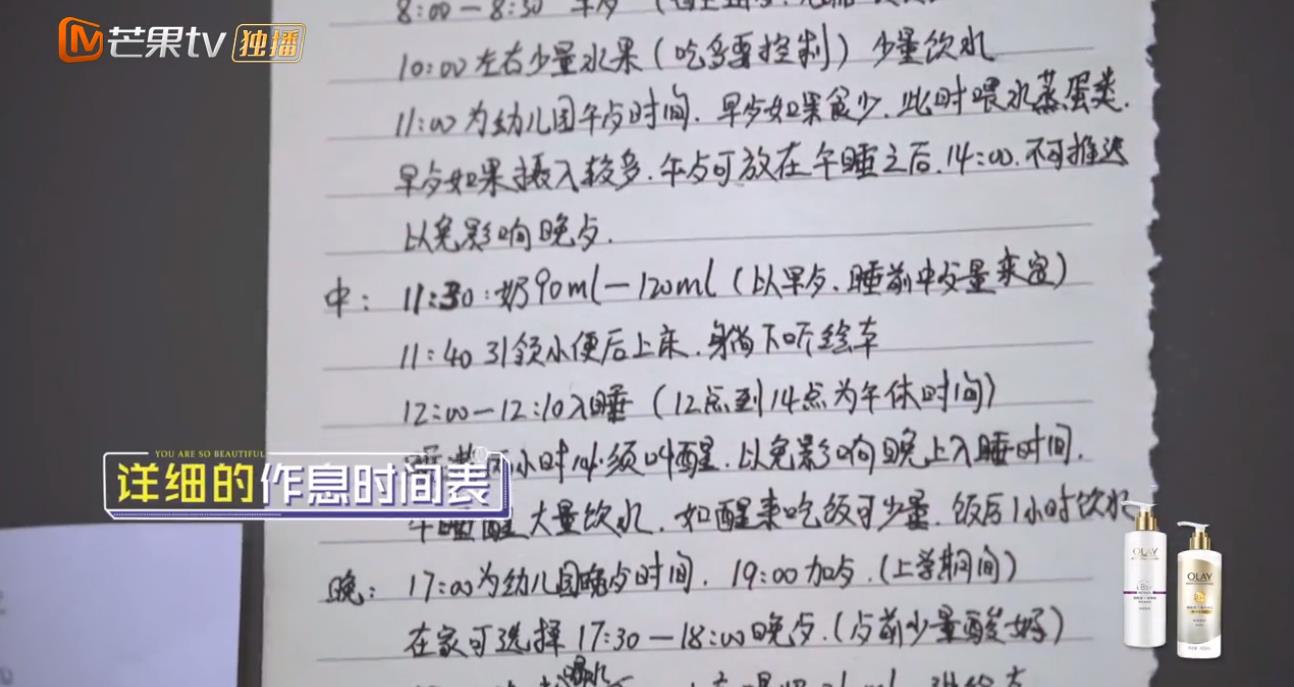 芒果tv 独播
8:00－8:30 早歺（
10:00左右少量水果（吃多要控制）少量饮水
11:00为幼儿园午歺时间．早歺如果食少．此时喂水蒸蛋类．
早歺如果摄入较多．午歺可放在午睡之后．14:00．不可推迟
以免影响晚歺．
中：11:30:奶90ml－120ml（以早歺．睡前中歺量来定）
11:40引领小便后上床．躺下听绘本
12:00－12:10入睡（12点到14点为午休时间）
小时必须叫醒．以免影响晚上入睡时间．
YOU ARE SO BEAUTIFUL
详细的作息时间表
午睡醒大量饮水．如醒来吃饭可少量．饭后1小时饮水
晚：17:00为幼儿园晚歺时间．19:00加歺．（上学期间）
在家可选择17:30－18:00晚歺．（歺前少量酸奶）
喝水
OLAY
OLAY